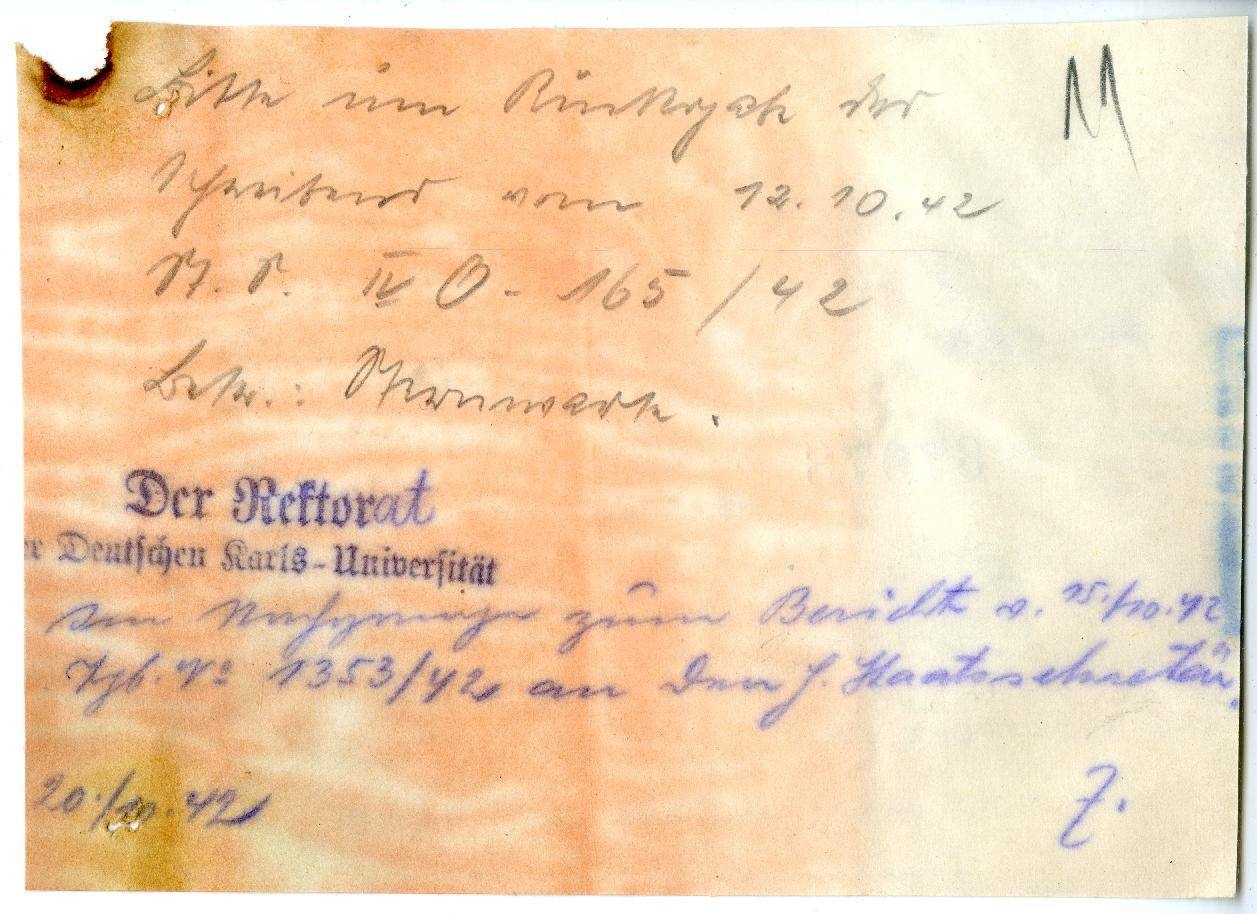 M
Bitte um Rückgabe des
Schreibens vom 12.10.42
St. S. IV O - 165 / 42
Betr.: Sternwarte.
Der Rektorat
er Deutschen Karls-Universität
im Nachgange zum Bericht v. 15./10.42
Tgb. No 1353/42 an den H. Staatssekretär.
20./10.42
Z.